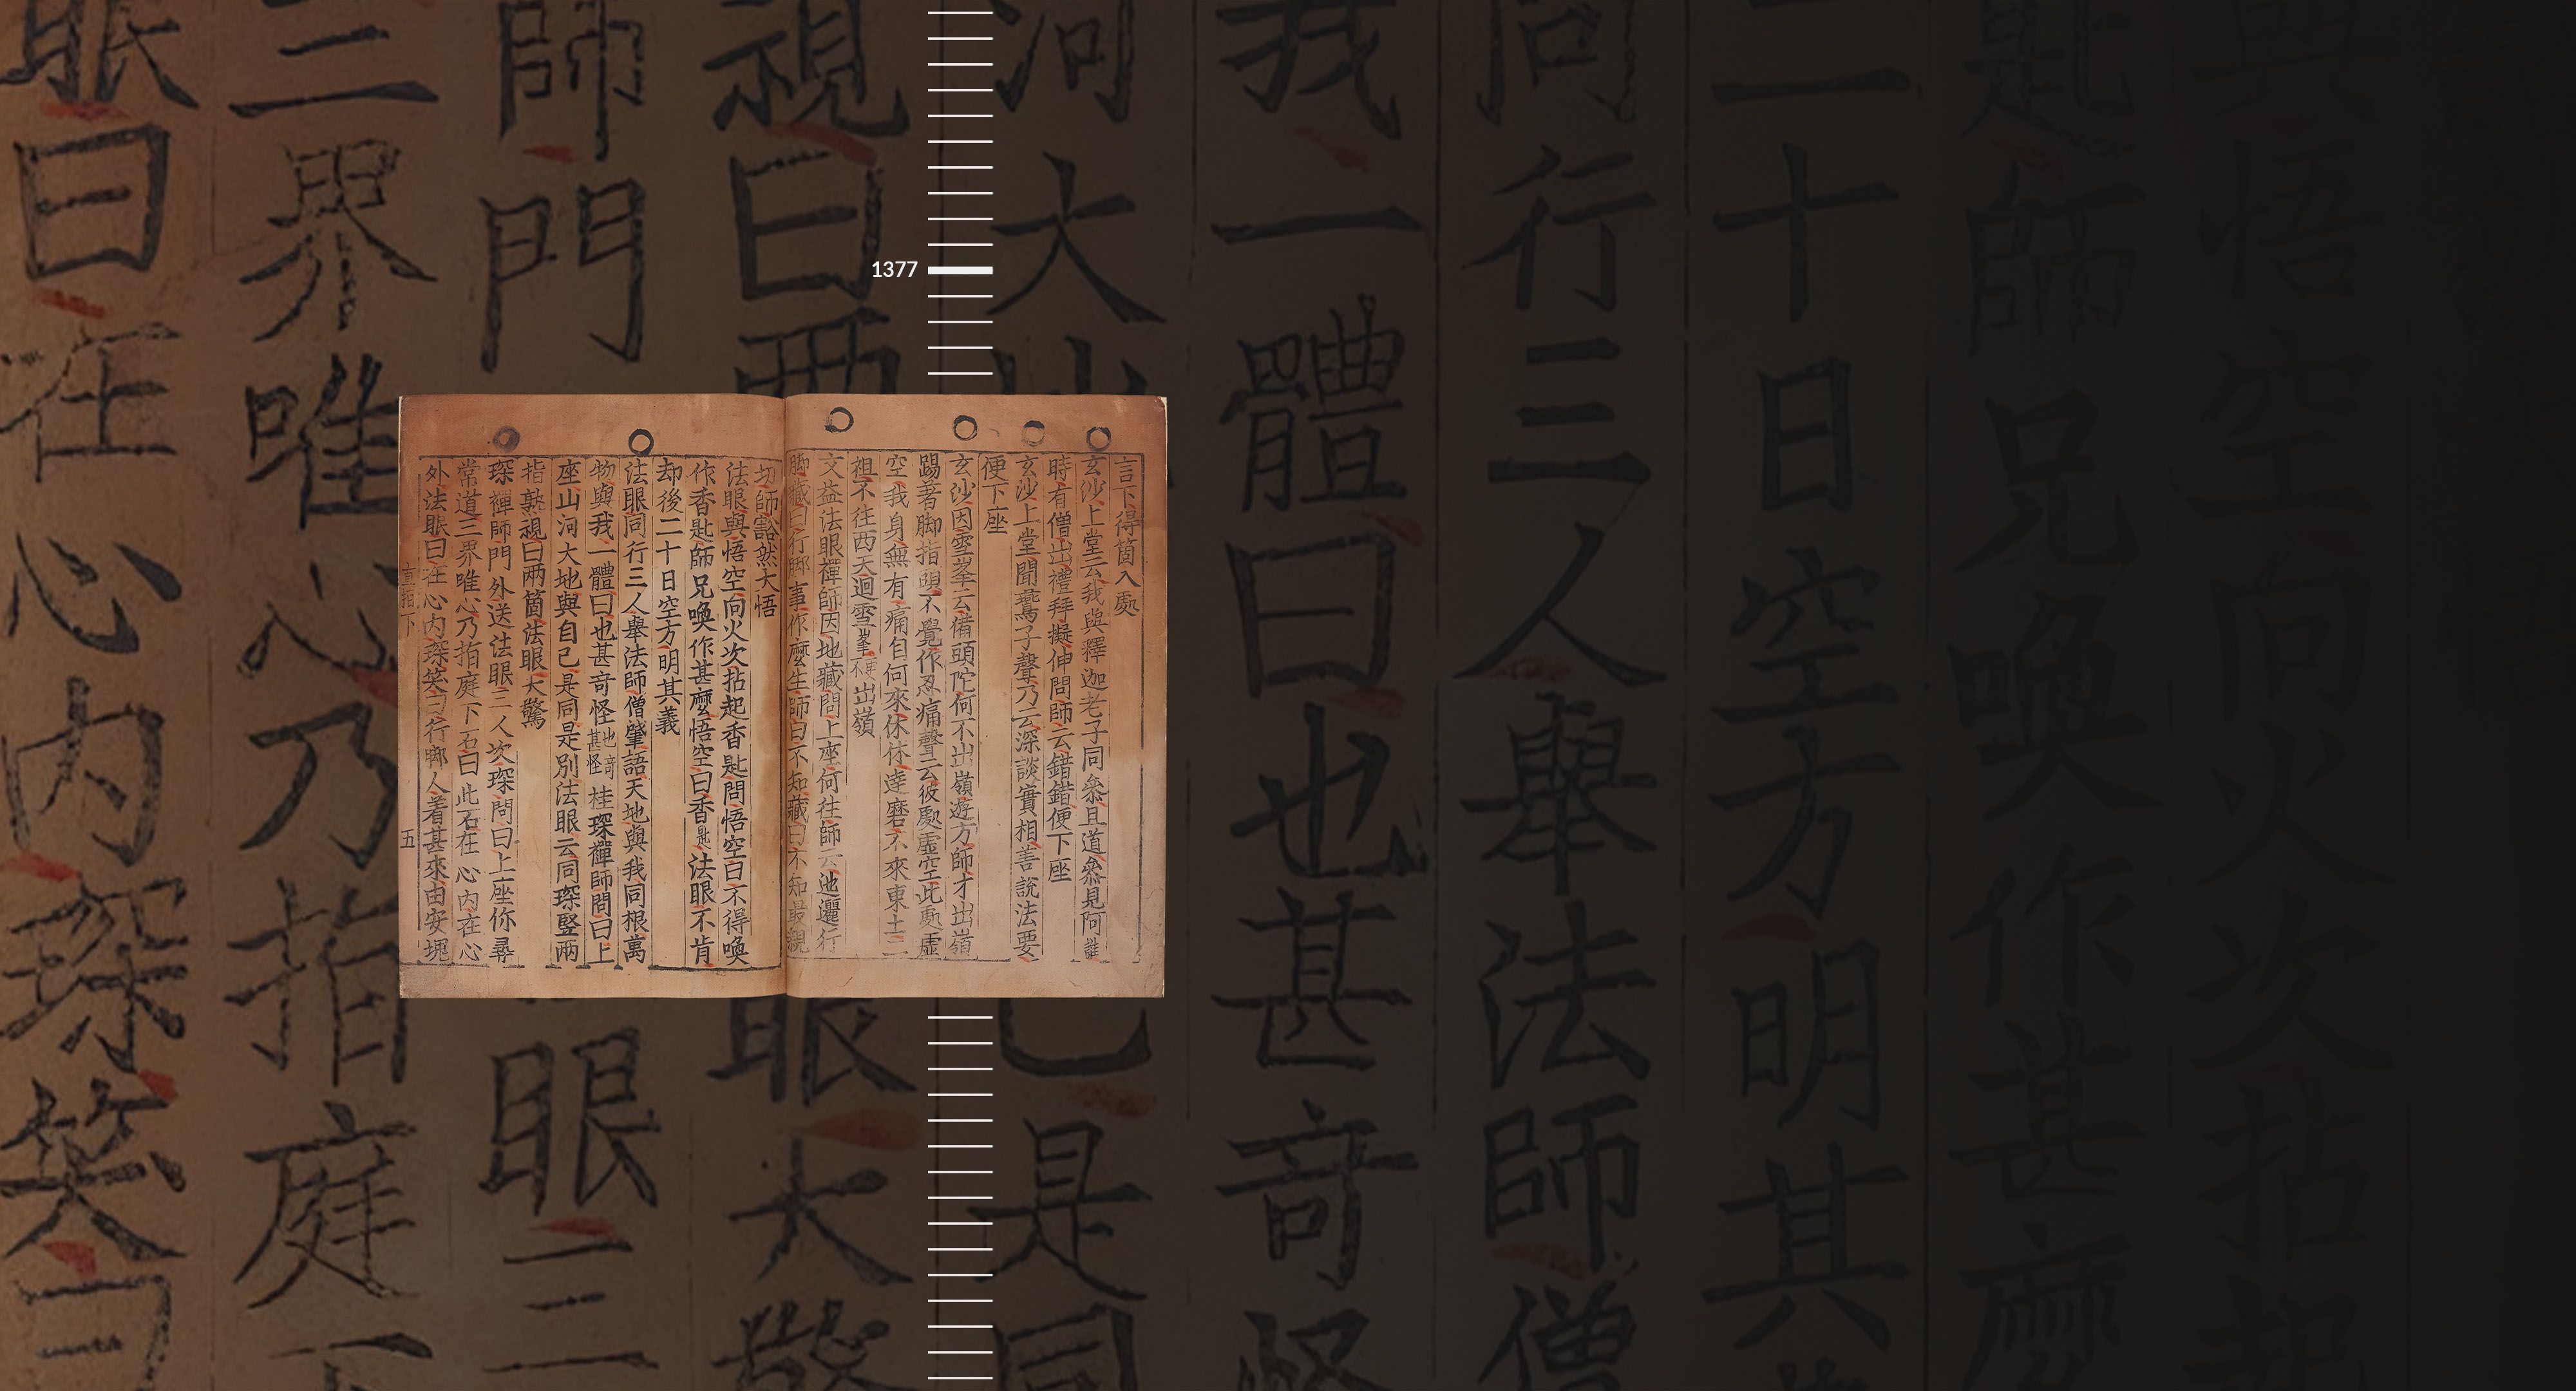 1377
言下得箇入處
玄沙上堂云我與釋迦老子同叅且道叅見阿誰
時有僧出禮拜擬伸問師云錯錯便下座
玄沙上堂聞鷰子聲乃云深談實相善說法要
便下座
玄沙因雪峯云備頭陀何不出嶺遊方師才出嶺
踢著脚指頭不覺作忍痛聲云彼處虛空此處虛
空我身無有痛自何來休休達磨不來東土二
祖不往西天迴雪峯不出嶺
文益法眼禪師因地藏問上座何往師云迤邐行
脚藏曰行脚事作麼生師曰不知藏曰不知最親
切師豁然大悟
法眼與悟空向火次拈起香匙問悟空曰不得喚
作香匙師兄喚作甚麼悟空曰香匙法眼不肯
却後二十日空方明其義
法眼同行三人舉法師僧肇語天地與我同根萬
物與我一體曰也甚奇怪也甚奇怪桂琛禪師問曰上
座山河大地與自己是同是別法眼云同琛竪兩
指熟視曰兩箇法眼大驚
琛禪師門外送法眼三人次琛問曰上座你尋
常道三界唯心乃指庭下石曰此石在心內在心
外法眼曰在心內琛笑曰行脚人着甚來由安塊
直指下 五